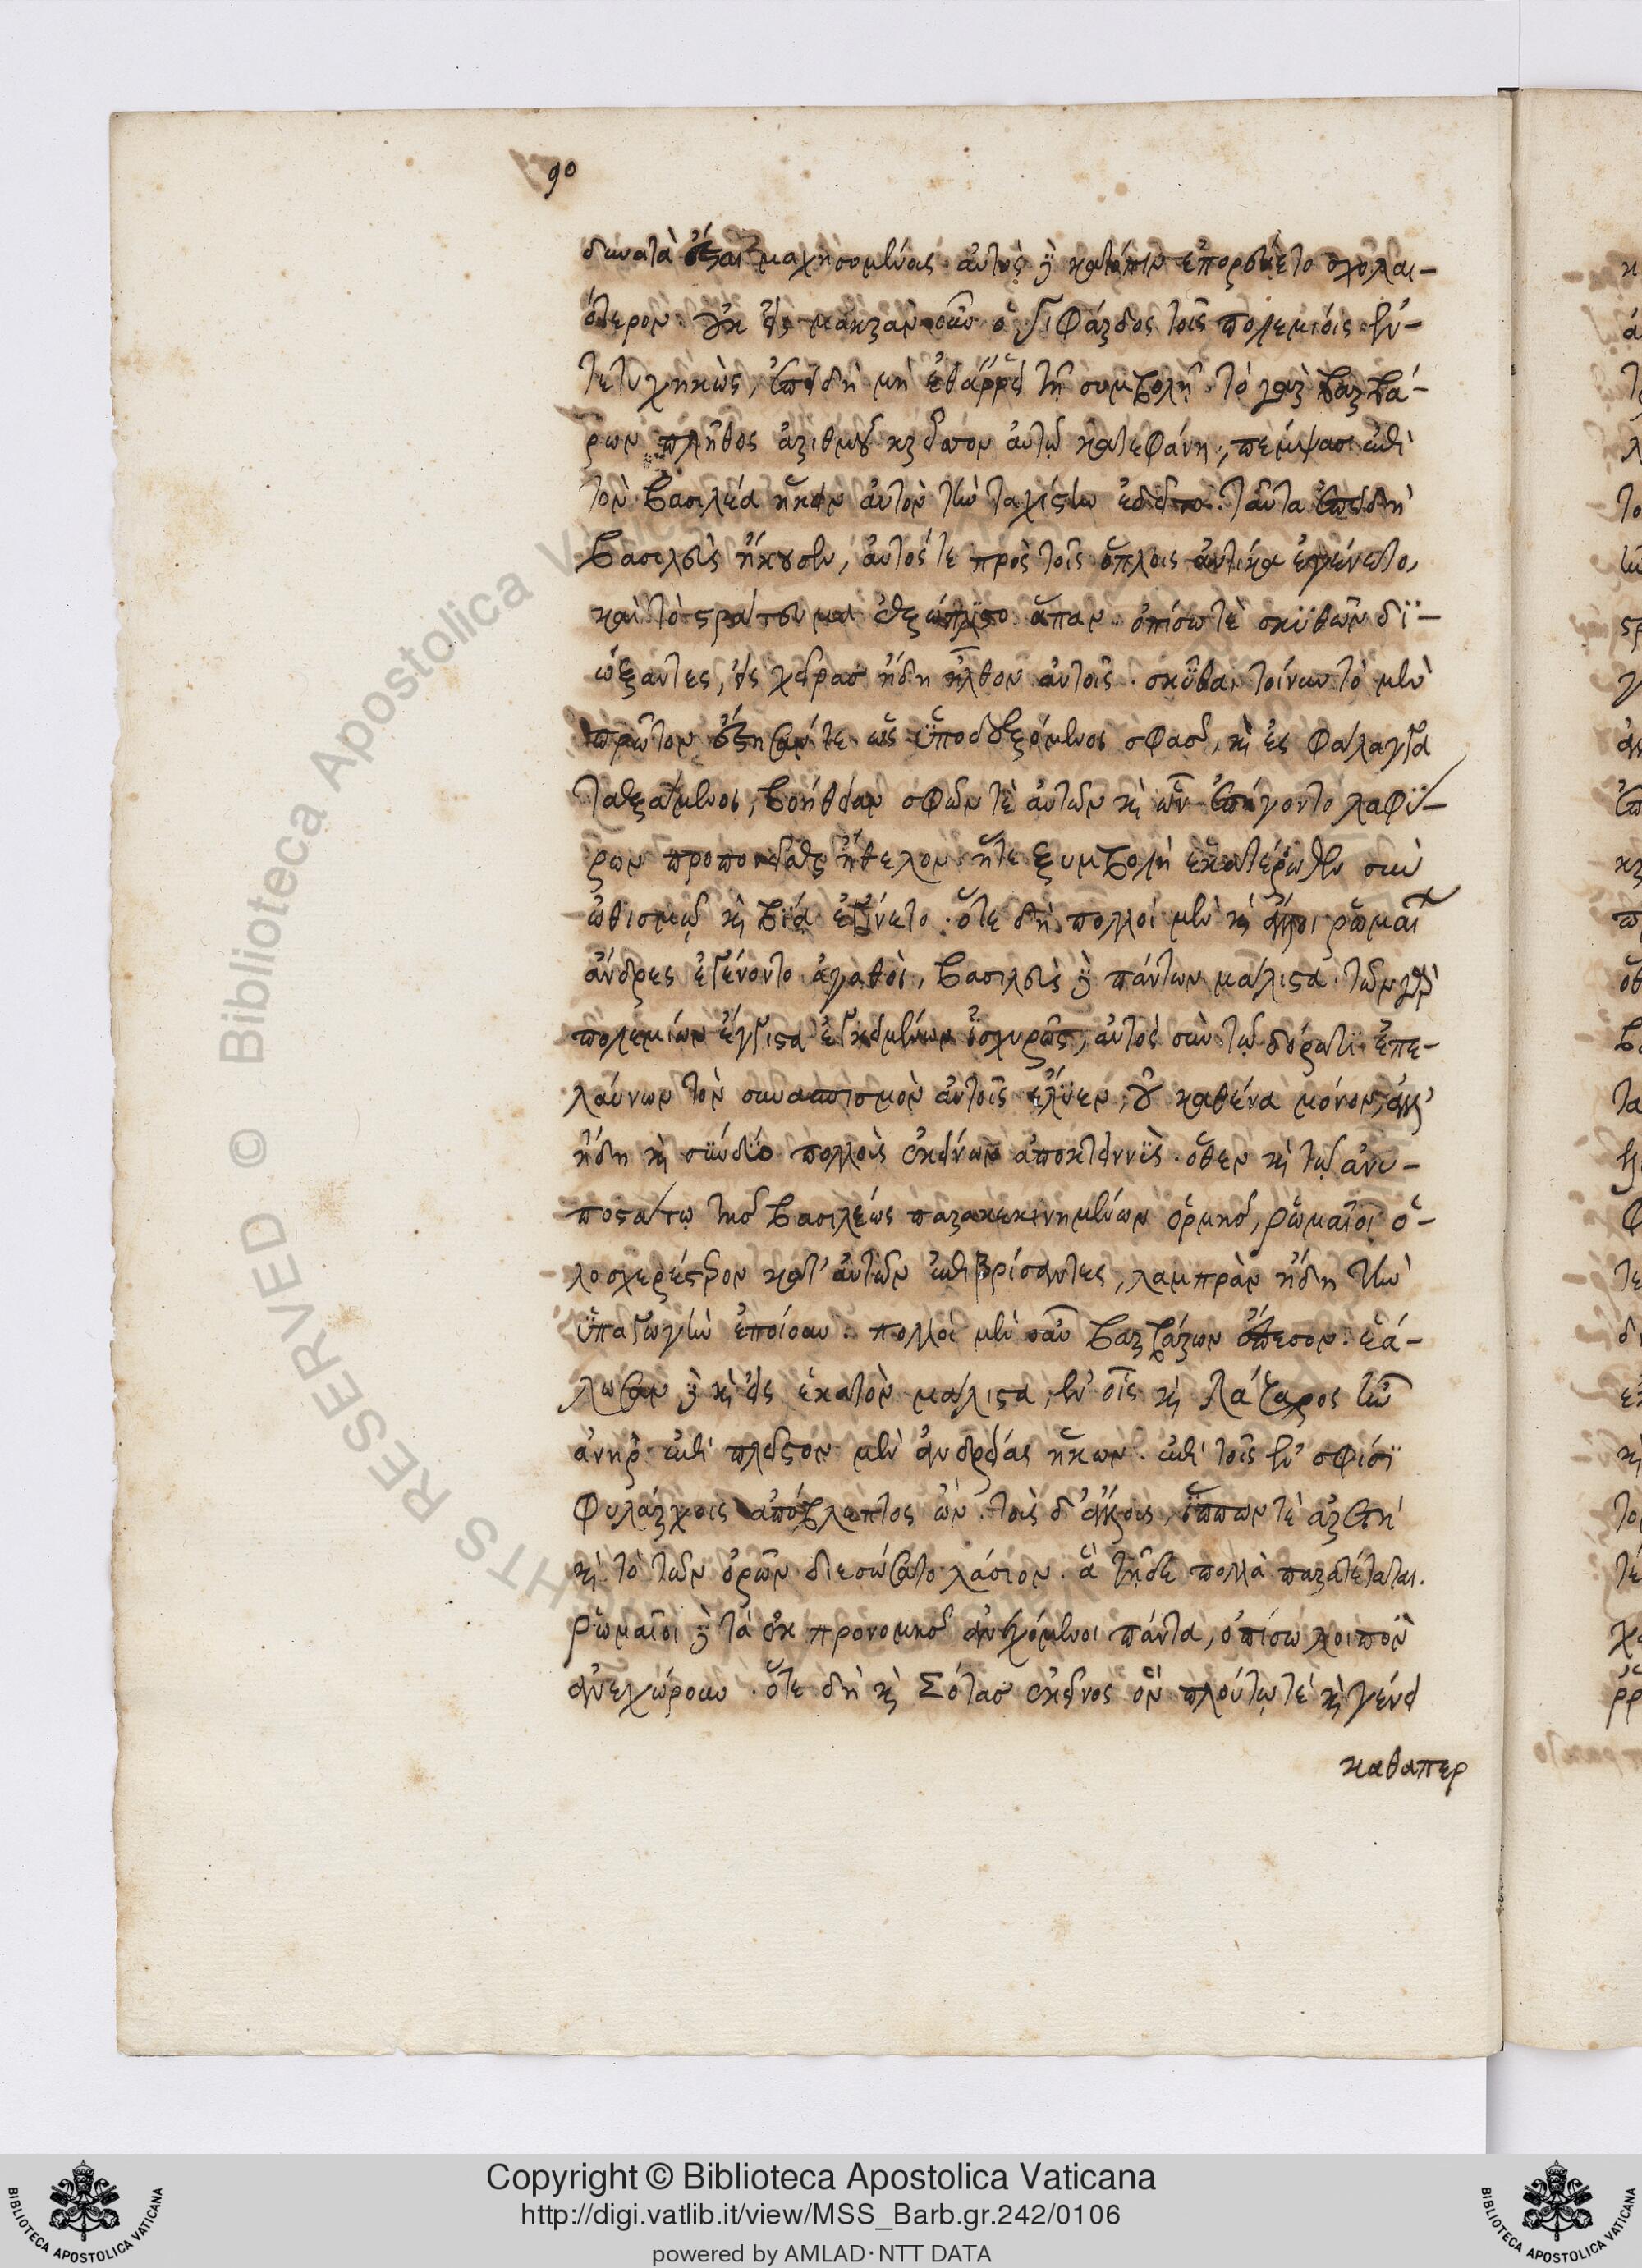 90
δυνατὰ εἶναι μαχησομένοις. αὐτὸς δὲ κατόπιν ἐπορεύετο σχολαι-
ότερον. ἐκ μακρὰν οὖν ὁ Σιφάρδος τοῖς πολεμίοις ἐν-
τετυχηκὼς, ἐπειδὴ μὴ ἐθάρρει τῇ συμβολῇ. τὸ γὰρ βαρβά-
ρων πλῆθος ἀριθμοῦ κρεῖττον αὐτῷ κατεφάνη, πέμψας ἐπὶ
τὸν βασιλέα ἥκειν αὐτὸν τὴν ταχίστην ἐδεῖτο. ταῦτα ἐπειδὴ
βασιλεὺς ἤκουσεν, αὐτός τε πρὸς τοῖς ὅπλοις αὐτίκα ἐγένετο,
καὶ τὸ στράτευμα ἐξώπλιστο ἅπαν. ὀπίσω τὲ σκυθῶν δϊ-
ώξαντες, εἰς χεῖρας ἤδη ἦλθον αὐτοῖς. σκύθαι τοίνυν τὸ μὲν
πρῶτον ἔστησάν τε ὡς ὑποδεξόμενοι σφᾶς, καὶ ἐς φάλαγγα
ταξάμενοι, βοήθειαν σφῶν τὲ αὐτῶν καὶ ὧν ἐπήγοντο λαφύ-
ρων προπονεῖσθαι ἤθελον. ἥτε ξυμβολὴ ἑκατέρωθεν σὺν
ὠθισμῷ καὶ βίᾳ ἐγίνετο. ὅτε δὴ πολλοὶ μὲν καὶ ἄλλοι ῥωμαῖοι
ἄνδρες ἐγένοντο ἀγαθοὶ, βασιλεὺς δὲ πάντων μάλιστα. τῶν γὰρ
πολεμίων ἔγγιστα ἐγκειμένων ἰσχυρῶς, αὐτὸς σὺν τῷ δόρατι ἐπε-
λαύνων τὸν συνασπισμὸν αὐτοῖς ἔλυεν, οὐ καθένα μόνον, ἀλλ'
ἤδη καὶ σύνδύο πολλοὺς ἐκείνων ἀποκτεννὺς. ὅθεν καὶ τῷ ἀνυ-
ποστάτῳ τῆς βασιλέως παρακεκινημένων ὁρμῆς, ῥωμαῖοι ὁ-
λοσχερέστερον κατ' αὐτῶν ἐπιβρίσαντες, λαμπρὰν ἤδη τὴν
ὑπαγωγὴν ἐποίουν. πολλοὶ μὲν οὖν βαρβάρων ἔπεσον. ἑά-
λωσαν δὲ καὶ εἰς ἑκατὸν μάλιστα, ἐν οἷς καὶ Λάζαρος ἦν
ἀνὴρ ἐπὶ πλεῖστον μὲν ἀνδρείας ἥκων. ἐπὶ τοῖς ἐν σφίσϊ
φυλάρχοις ἀπόβλεπτος ὤν. τοὺς δ' ἄλλους, ἵππων τὲ ἀρετὴ
καὶ τὸ τῶν ὀρῶν διεσώσατο λάσιον. ἃ τῇδε πολλὰ παρατέταται.
Ῥωμαῖοι δὲ τὰ ἐκ προνομῆς ἀνελόμενοι πάντα, ὀπίσω λοιπὸν
ἀνεχώρουν. ὅτε δὴ καὶ Σότας ἐκεῖνος ὃν πλούτῳ τέ καὶ γένει
καθαπερ
Copyright © Biblioteca Apostolica Vaticana
http://digi.vatlib.it/view/MSS_Barb.gr.242/0106
powered by AMLAD·NTT DATA